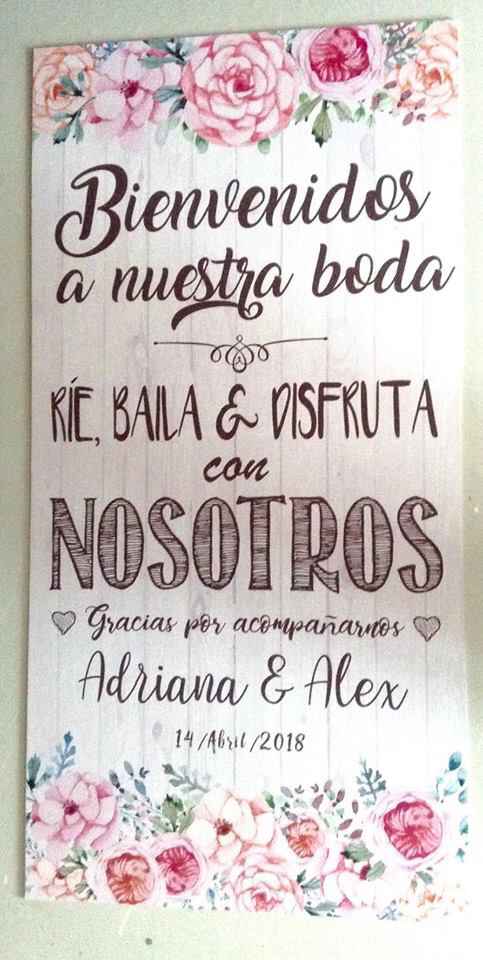 Bienvenidos
a nuestra boda
RÍE, BAILA & DISFRUTA
con
NOSOTROS
Gracias por acompañarnos
Adriana & Alex
14/Abril/2018